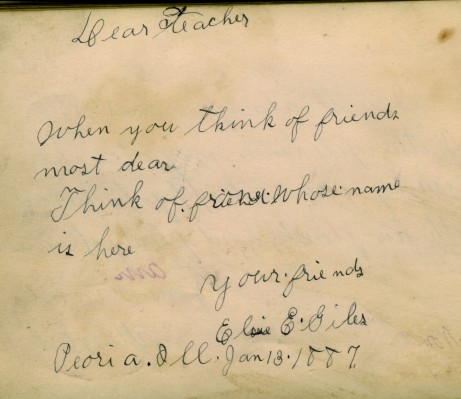 Dear Teacher
When you think of friends
most dear
Think of friend whose name
is here
your friends
Elsie E. Giles
Peoria. Ill. Jan 13. 1887